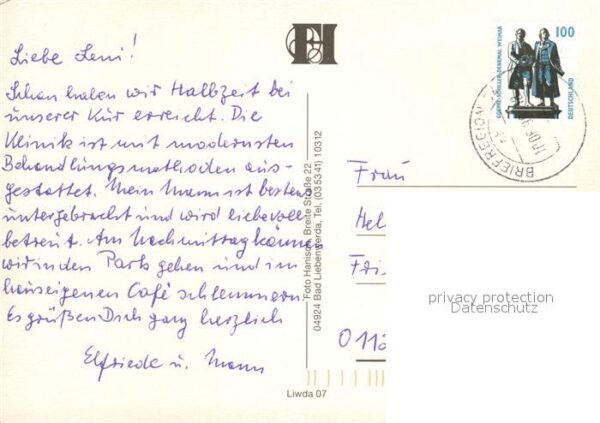 Liebe Leni!
Schon haben wir Halbzeit bei
unserer Kur erreicht. Die
Klinik ist mit modernsten
Behandlungsmethoden aus-
gestattet. Mein Mann ist bestens
untergebracht und wird liebevoll
betreut. Am Nachmittag können
wir in den Park gehen und im
hauseigenen Café schlemmern.
Es grüßen Dich ganz herzlich
Elfriede u. Mann
FH
Foto Hanisch, Breite Straße 22
04924 Bad Liebenwerda, Tel. (03 53 41) 10312
Liwda 07
GOETHE-SCHILLER-DENKMAL WEIMAR
100
DEUTSCHLAND
BRIEFREGION
Frau
Hel
Fri
011
privacy protection
Datenschutz